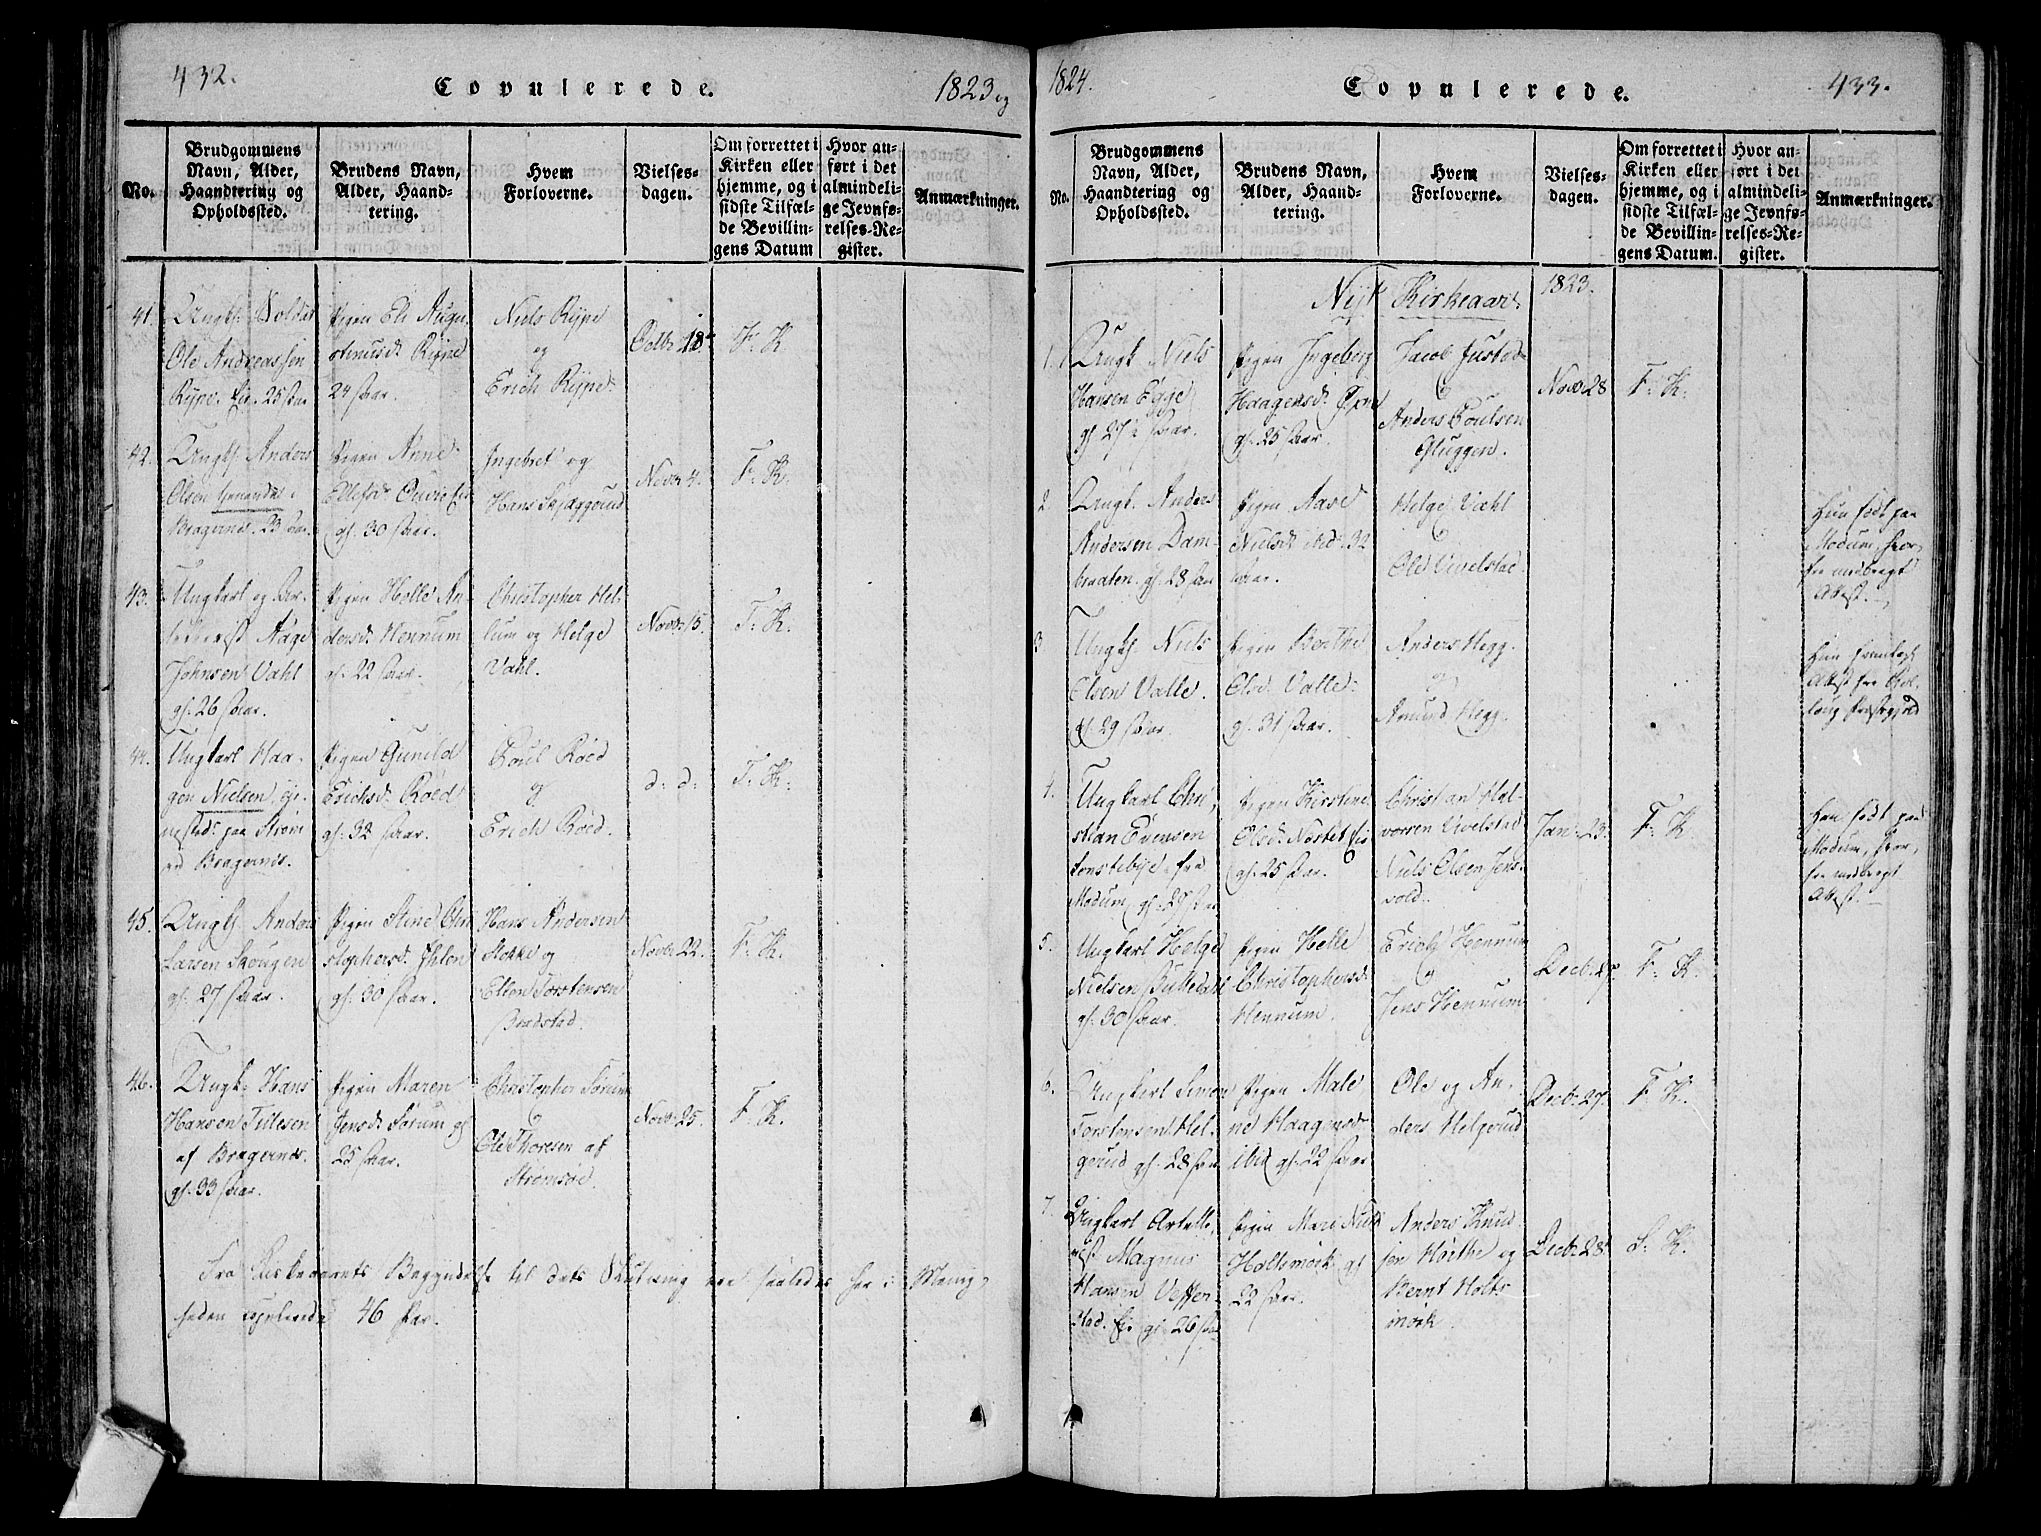 432.
Copulerede.
1823 og
No.
Brudgommens
Navn, Alder,
Haandtering og
Opholdssted.
Brudens Navn,
Alder, Haand-
tering.
Hvem
Forloverne.
Vielses-
dagen.
Om forrettet i
Kirken eller
hjemme, og i
sidste Tilfæl-
de Bevillin-
gens Datum
Hvor an-
ført i det
almindeli-
ge Jevnfø-
relses-Re-
gister.
Anmærkninger.
41.
Ungk: Soldat
Ole Andreassen
Rype. Eie. 25 Aar
Pigen Eli Augu-
stinusd: Rype
24 Aar.
Niels Rype
og
Erich Rype
Octb: 18
F: K.
42.
Ungk: Anders
Olsen i
Bragernes. 23 Aar.
Pigen Anne
Ellefsd:
gl. 30 Aar.
Ingebret og
Hans Skjæggerud
Novbr 4.
F: K.
43.
Ungkarl og
Aage
Johnsen Vahl
gl. 26 Aar.
Pigen Helle An-
dersd: Hennum
gl. 22 Aar.
Christopher Hel-
lum og Helge
Vahl.
Novb: 15.
F: K.
44.
Ungkarl Haa-
gen Nielsen, tje-
nested: paa Strøm
ved Bragernes.
Pigen Gunild
Erichsd: Röed
gl. 32 Aar.
Poul Röed
og
Erich Röed.
d: d:
F: K:
45.
Ungk: Anders
Larsen Skougen
gl. 27 Aar.
Pigen Stine Chri-
stophersd: Ihlen
gl. 30 Aar.
Hans Andersen
Stokke og
Ellen Torstensen
Bradstad.
Novbr: 22.
F: K.
46.
Ungk: Hans
Hansen Tutesen
af Bragernes.
gl. 33 Aar.
Pigen Maren
Jensd: Sørum gl
25 Aar.
Christopher Sørum
og
Ole Thoresen af
Strømsöe.
Novb: 25.
F. K.
Fra Kirkeaarets Begyndelse til dets Slutning ere saaledes her i Menig-
heden copulerede 46 Par.
1824.
Copulerede.
433.
No.
Brudgommens
Navn, Alder,
Haandtering og
Opholdssted.
Brudens Navn,
Alder, Haand-
tering.
Hvem
Forloverne.
Vielses-
dagen.
Om forrettet i
Kirken eller
hjemme, og i
sidste Tilfæl-
de Bevillin-
gens Datum.
Hvor an-
ført i det
almindeli-
ge Jevnfø-
relses-Re-
gister.
Anmærkninger.
Nyt Kirkeaar 1823.
1.
Ungk Niels
Hansen Egge
gl. 27½ Aar.
Pigen Ingeborg
Haagensd:
gl. 25 Aar.
Jacob Justad
og
Anders Poulsen
Gluggen.
Novbr 28
F: K:
2.
Ungk. Anders
Andersen Dam-
braaten. gl. 28 Aar
Pigen Aase
Nielsd: ibid: 32
Aar.
Helge Vahl
og
Ole Vivelstad.
Hun født paa
Modum, hvor-
fra medbragt
Attest.
3
Ungk: Niels
Olsen Valle.
gl. 29 Aar.
Pigen Berthe
Olsd: Valle.
gl. 31 Aar.
Anders Hegg.
og
Amund Hegg.
Hun fremlagt
Attest fra
Præstegjeld
4.
Ungkarl Chri-
stian Evensen
fra
Modum, gl. 27 Aar
Pigen Kirstine
Olsd: Eie
gl. 25 Aar.
Christian Hal-
vorsen Vivelstad
Niels Olsen Jens-
vold.
Jan: 23.
F: K
Han født paa
Modum, hvor-
fra medbragt
Attest.
5.
Ungkarl Helge
Nielsen
gl. 30 Aar.
Pigen Helle
Christophersd:
Hennum.
Erich Hennum
og
Jens Hennum
Decb: 27.
F: K.
6.
Ungkarl Simon
Torstensen Hel-
gerud gl. 28 Aar
Pigen Male-
ne Haagensd:
ibid gl. 22 Aar
Ole og An-
ders Helgerud
Decb: 27.
F: K.
7.
Ungkarl Artille-
rist Magnus
Hansen
Eie gl. 26 Aar
Pigen Mari Nielsd
Holtsmörk gl
22 Aar.
Anders Knud-
sen Hørthe og
Bernt Holts
mörk.
Decb: 28.
S. K.